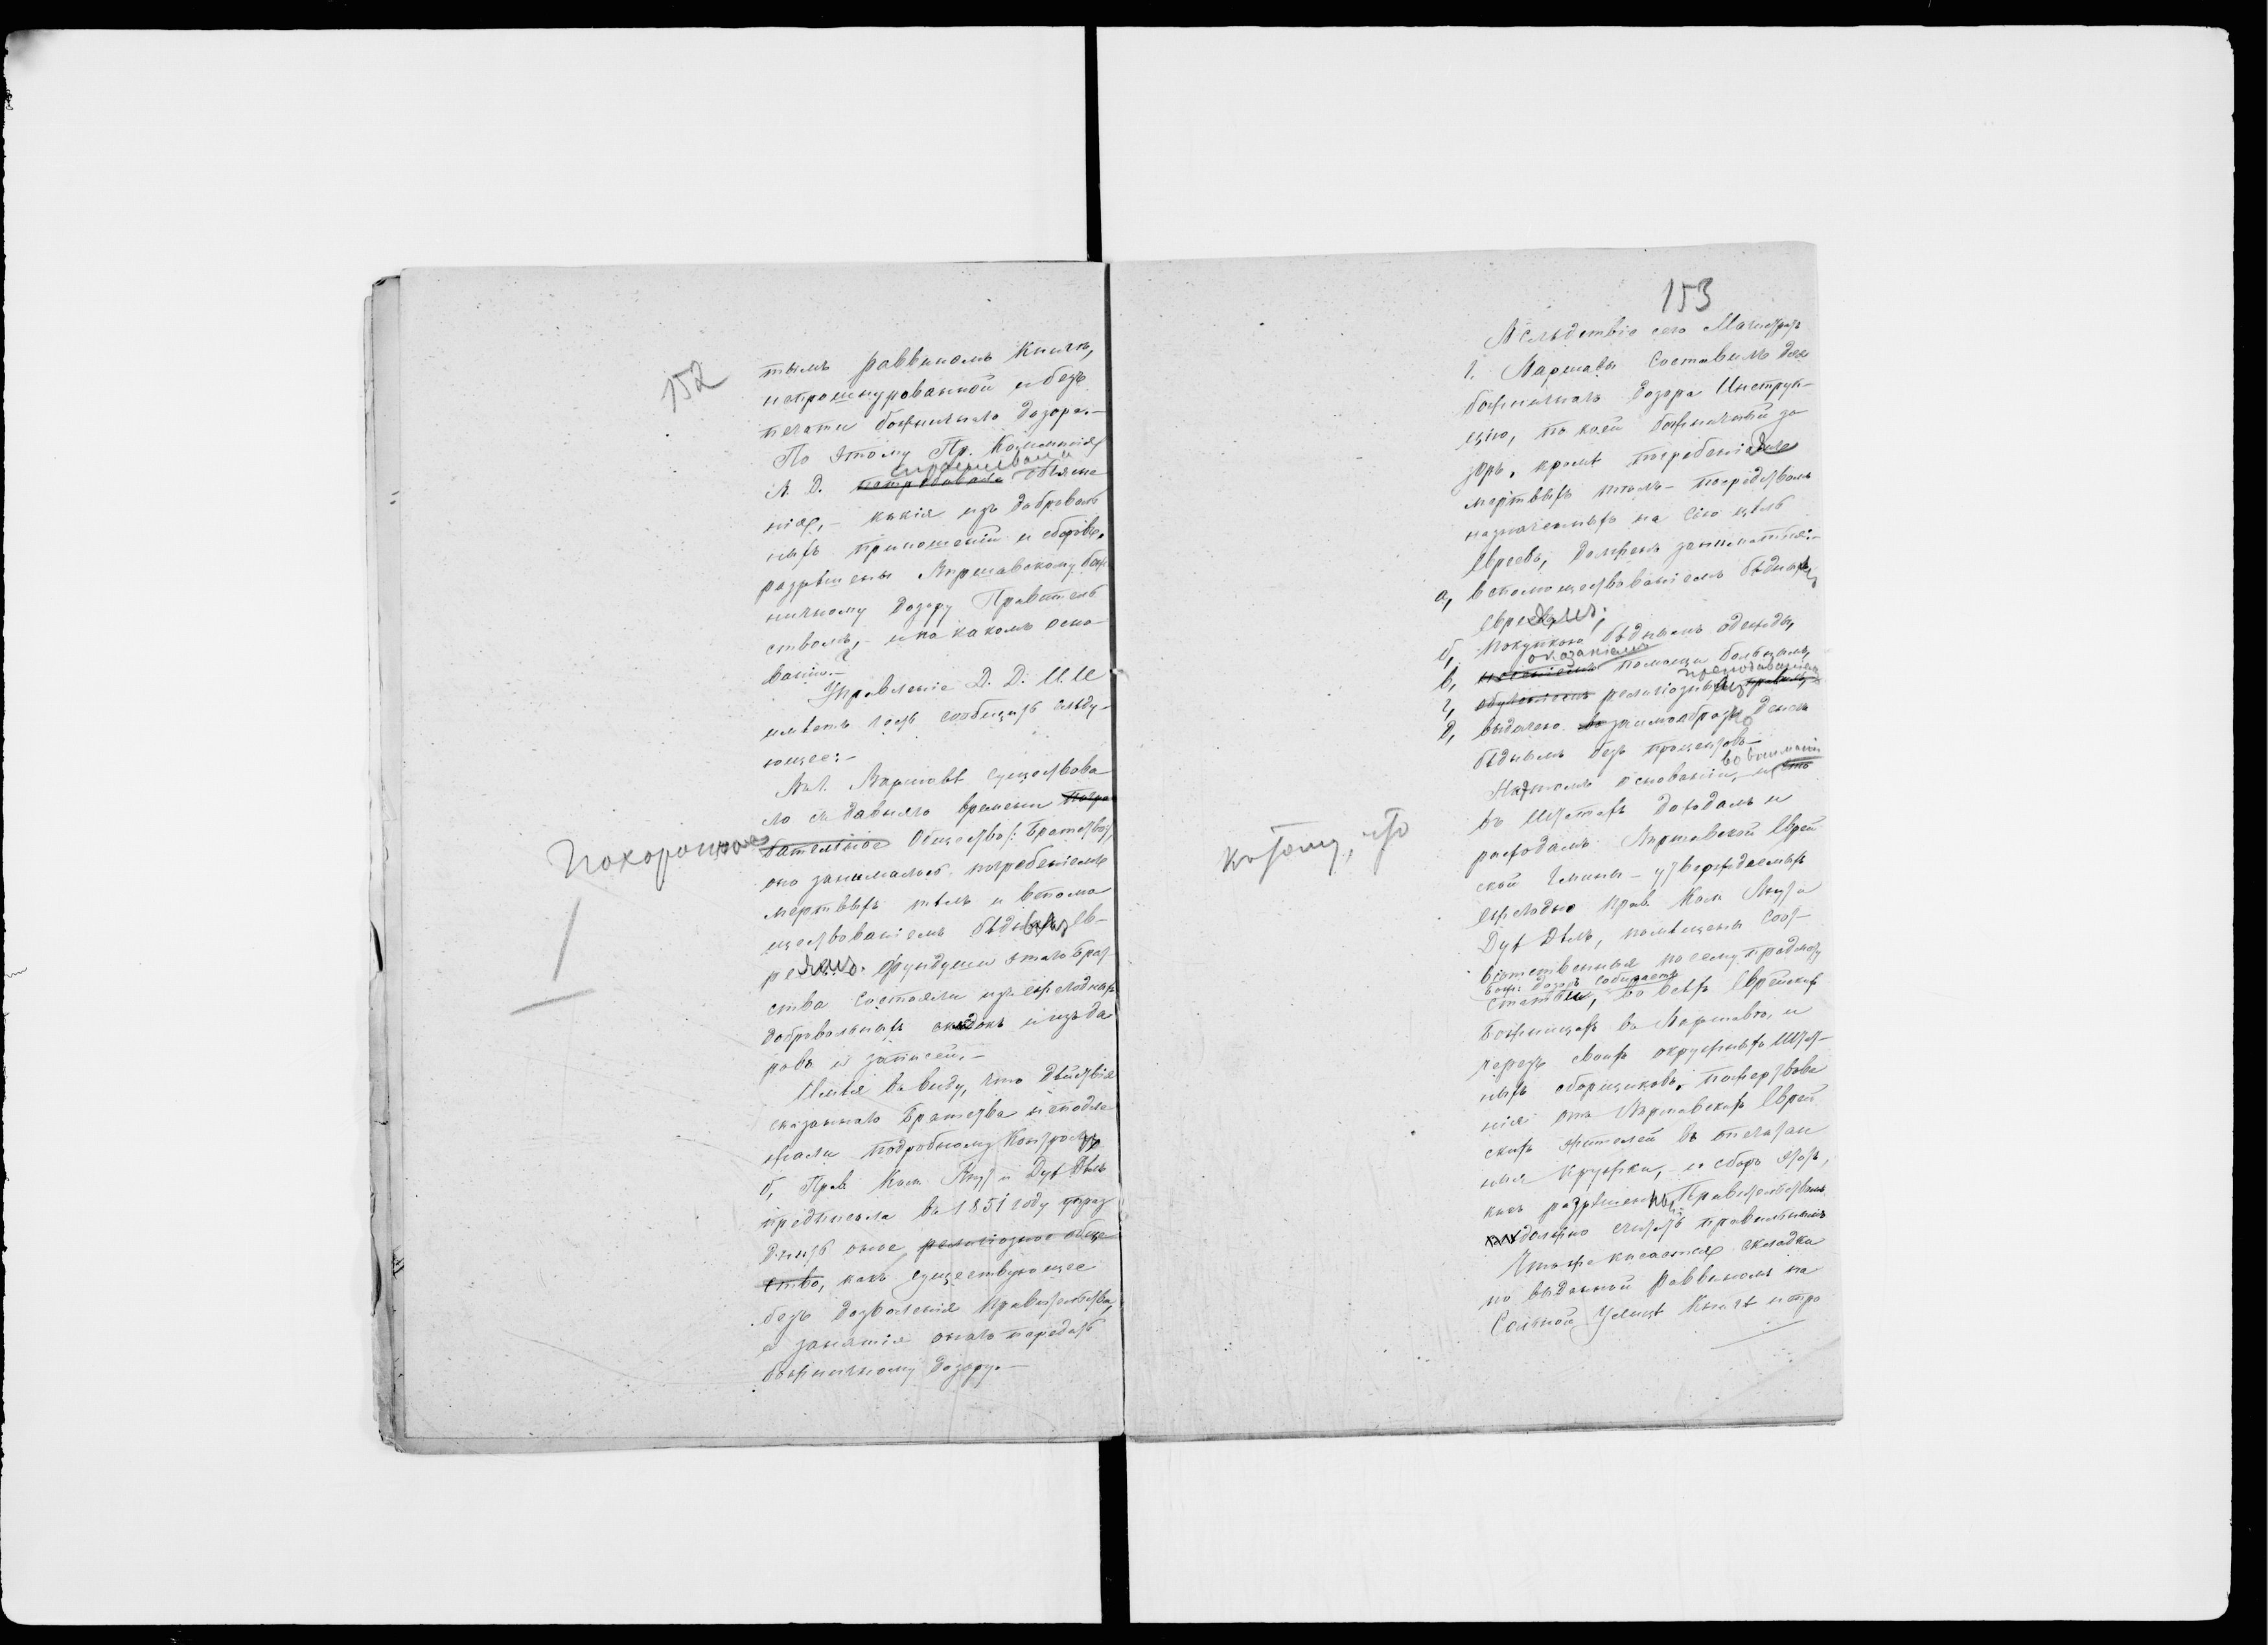 152
тымъ раввиномъ Книгъ,
непрошнурованной и безъ
печати божничнаго дозора.—
По этому Пр. Коммисія
В. Д. потребовала объясне
нія,— какія изъ доброволь
ныхъ приношеній и сборовъ,
разрѣшены Варшавскому бож
ничному дозору Правитель
ствомъ,— и на какомъ осно
ваніи?—
Управленіе Д. Д. И. И
имѣетъ честь сообщить слѣду-
ющее:—
Въ г. Варшавѣ существова
ло съ давняго времени погре
бательное Общество /: Братство/,
Похоронное
оно занималось погребеніемъ
мертвыхъ тѣлъ и вспомо
ществованіемъ бѣднымъ Ев-
реямъ. Фундуши этаго Брат
ства состояли изъ ежегодныхъ
добровольныхъ складокъ и изъ да
ровъ и записей.—
Имѣя въ виду, что дѣйствія
сказаннаго Братства не подле
жали подробному Контролю
б, Прав Ком Внут и Дух Дѣлъ
предписала въ 1851 году упраз
днить оное религіозное обще
ство, какъ существующее
безъ дозволенія Правительства,
а занятія онаго передать
божничному дозору.—
153
Вслѣдствіе сего Магистратъ
г. Варшавы составилъ для
божничнаго Дозора Инструк-
цію, по коей божничный до
зоръ, кромѣ погребенія
мертвыхъ тѣлъ— посредствомъ
назначенныхъ на сію цѣль
Евреевъ, долженъ заниматься:—
а, вспомоществованіемъ бѣднымъ
Евреямъ;
б, покупкою бѣднымъ одежды,
оказаніемъ
в, помощи больнымъ,
г, обученіемъ религіозныхъ правилъ,
д, выдачею заимообразно денегъ
бѣднымъ безъ процентовъ—
На этомъ основаніи,
во вниманіи
къ тому, что
въ Штатѣ доходамъ и
расходамъ Варшавской Еврей
ской Гмины— утверждаемыхъ
ежегодно Прав Ком Внут и
Дух Дѣлъ, помѣщены соот-
вѣтственныя по сему предмету
Бож: Дозоръ собираетъ
статьи, во всѣхъ Еврейскихъ
Божницахъ въ Варшавѣ, и
чрезъ своихъ окружныхъ Штат-
ныхъ сборщиковъ, пожертвова
нія отъ Варшавскихъ Еврей
скихъ жителей въ опечатан
ныя кружки, и сборъ этотъ,
какъ разрѣшенный Правительствомъ
должно считать правильнымъ
Что же касается складки
по выданной Раввиномъ на
Соляной Улицѣ Книгѣ непро